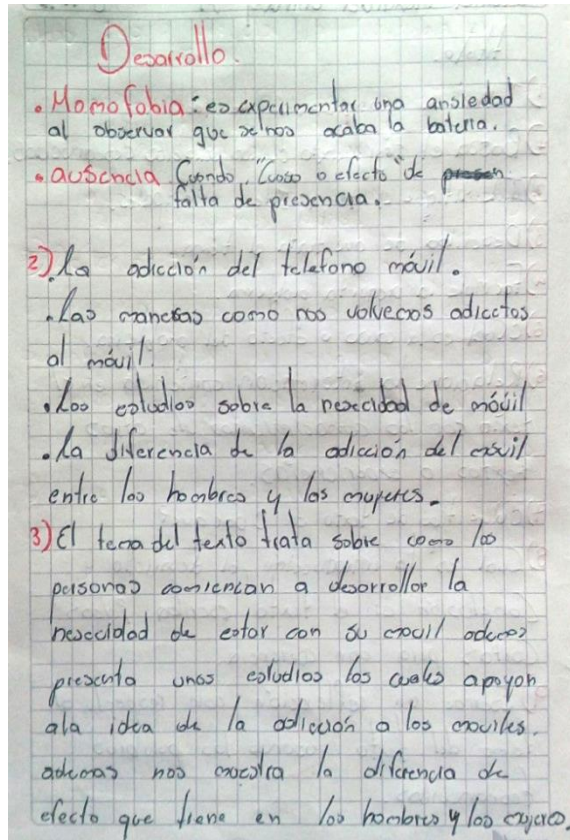 Desarrollo.
• Momofobia: es expeimentar una ansiedad
al observar que se nos acaba la bateria.
• ausencia Cuando, "Cuaso o efecto" de presen
falta de presencia.
2) La adicción del telefono móvil.
• Las maneras como nos volvemos adicctos
al móvil.
• Los estudios sobre la nesecidad de móvil
• La diferencia de la adicción del móvil
entre los hombres y las mujeres.
3) El tema del texto trata sobre como las
personas comiencan a desorrollor la
nesecidad de estar con su movil ademas
presenta unos estudios los cuales apoyon
ala idea de la adiccion a los moviles.
ademas nos muestra la diferencia de
efecto que tiene en los hombres y las mujeres.